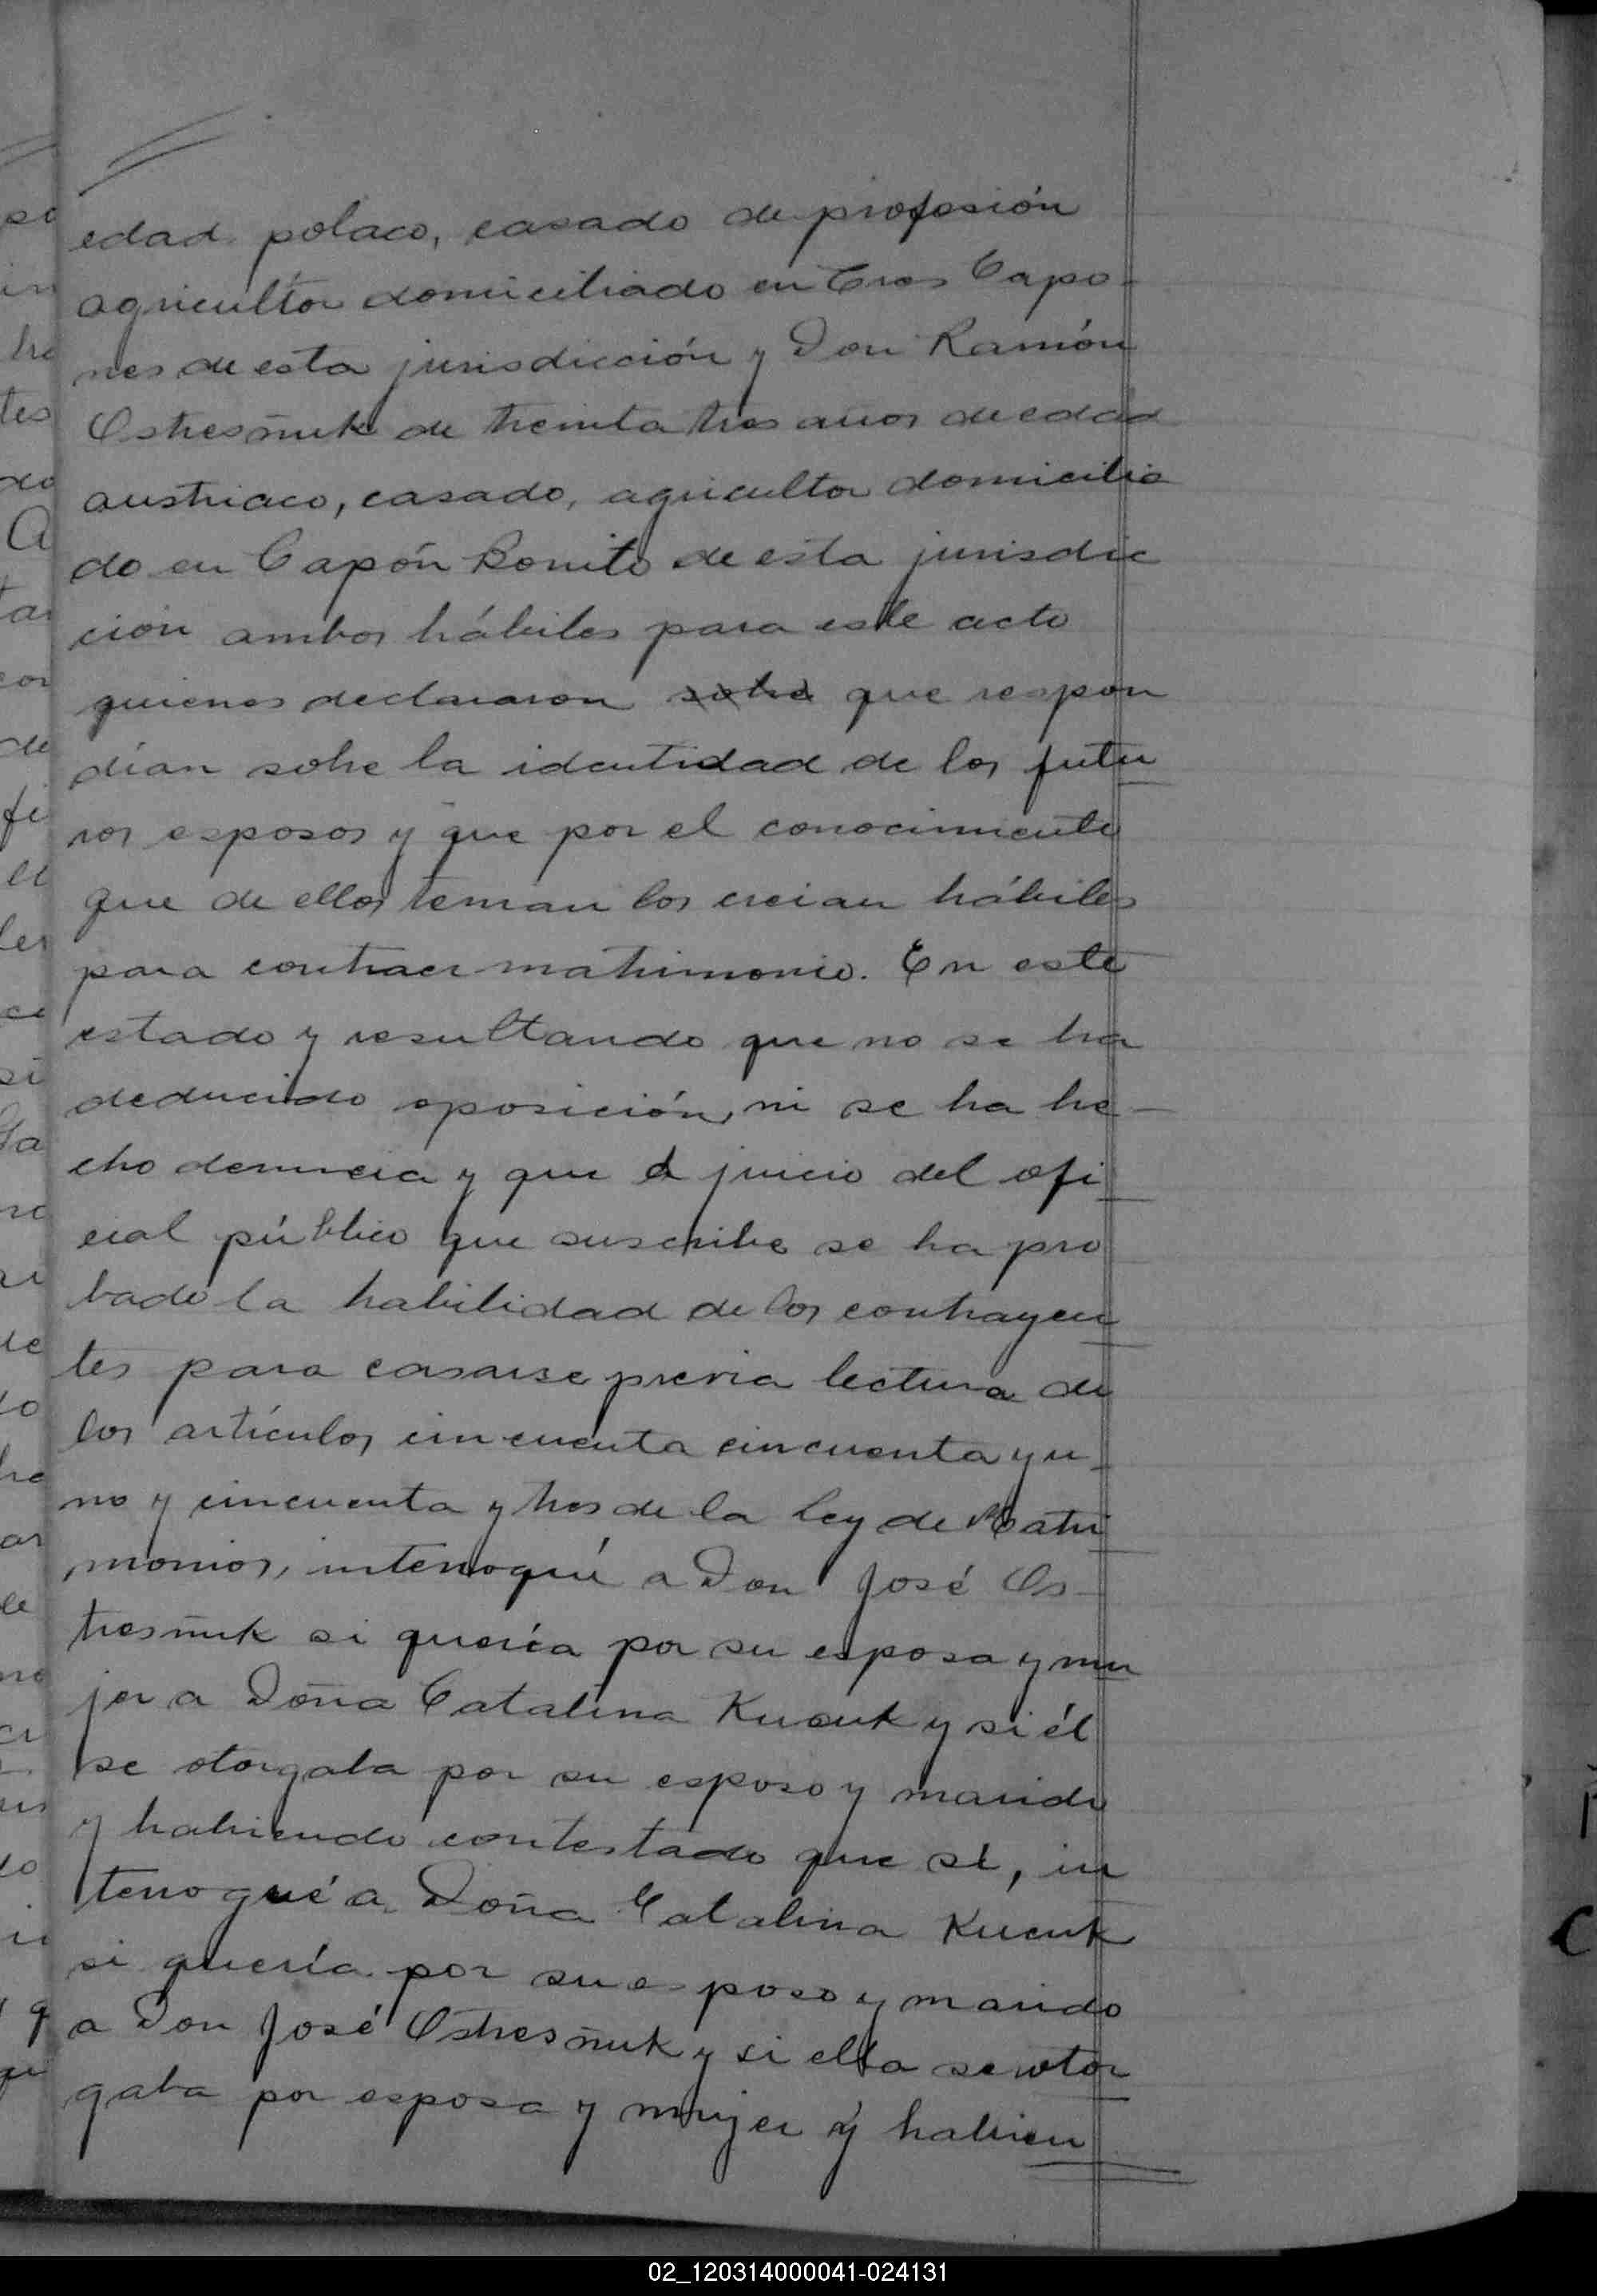 edad polaco, casado de profesión
agricultor domiciliado en Tres Capo-
nes de esta jurisdicción y Don Ramón
Ostresñuk de treinta tres años de edad
austriaco, casado, agricultor domicilia
do en Capón Bonito de esta jurisdic
ción ambos hábiles para este acto
quienes declararon sobre que respon
dían sobre la identidad de los futu
ros esposos y que por el conocimiento
que de ellos tenian los creian hábiles
para contraer matrimonio. En este
estado y resultando que no se ha
deducido oposición, ni se ha he-
cho denuncia y que á juicio del ofi
cial público que suscribe se ha pro
bado la habilidad de los contrayen
tes para casarse previa lectura de
los artículos cincuenta cincuenta y u-
no y cincuenta y tres de la ley de Matri
monios, interrogué a Don José Os-
tresñuk si quería por su esposa y mu
jer a Doña Catalina Kucuk y si él
se otorgaba por su esposo y marido
y habiendo contestado que sí, in
terrogué a Doña Catalina Kucuk
si quería por su esposo y marido
a Don José Ostresñuk y si ella se otor
gaba por esposa y mujer y habien
02_120314000041-024131